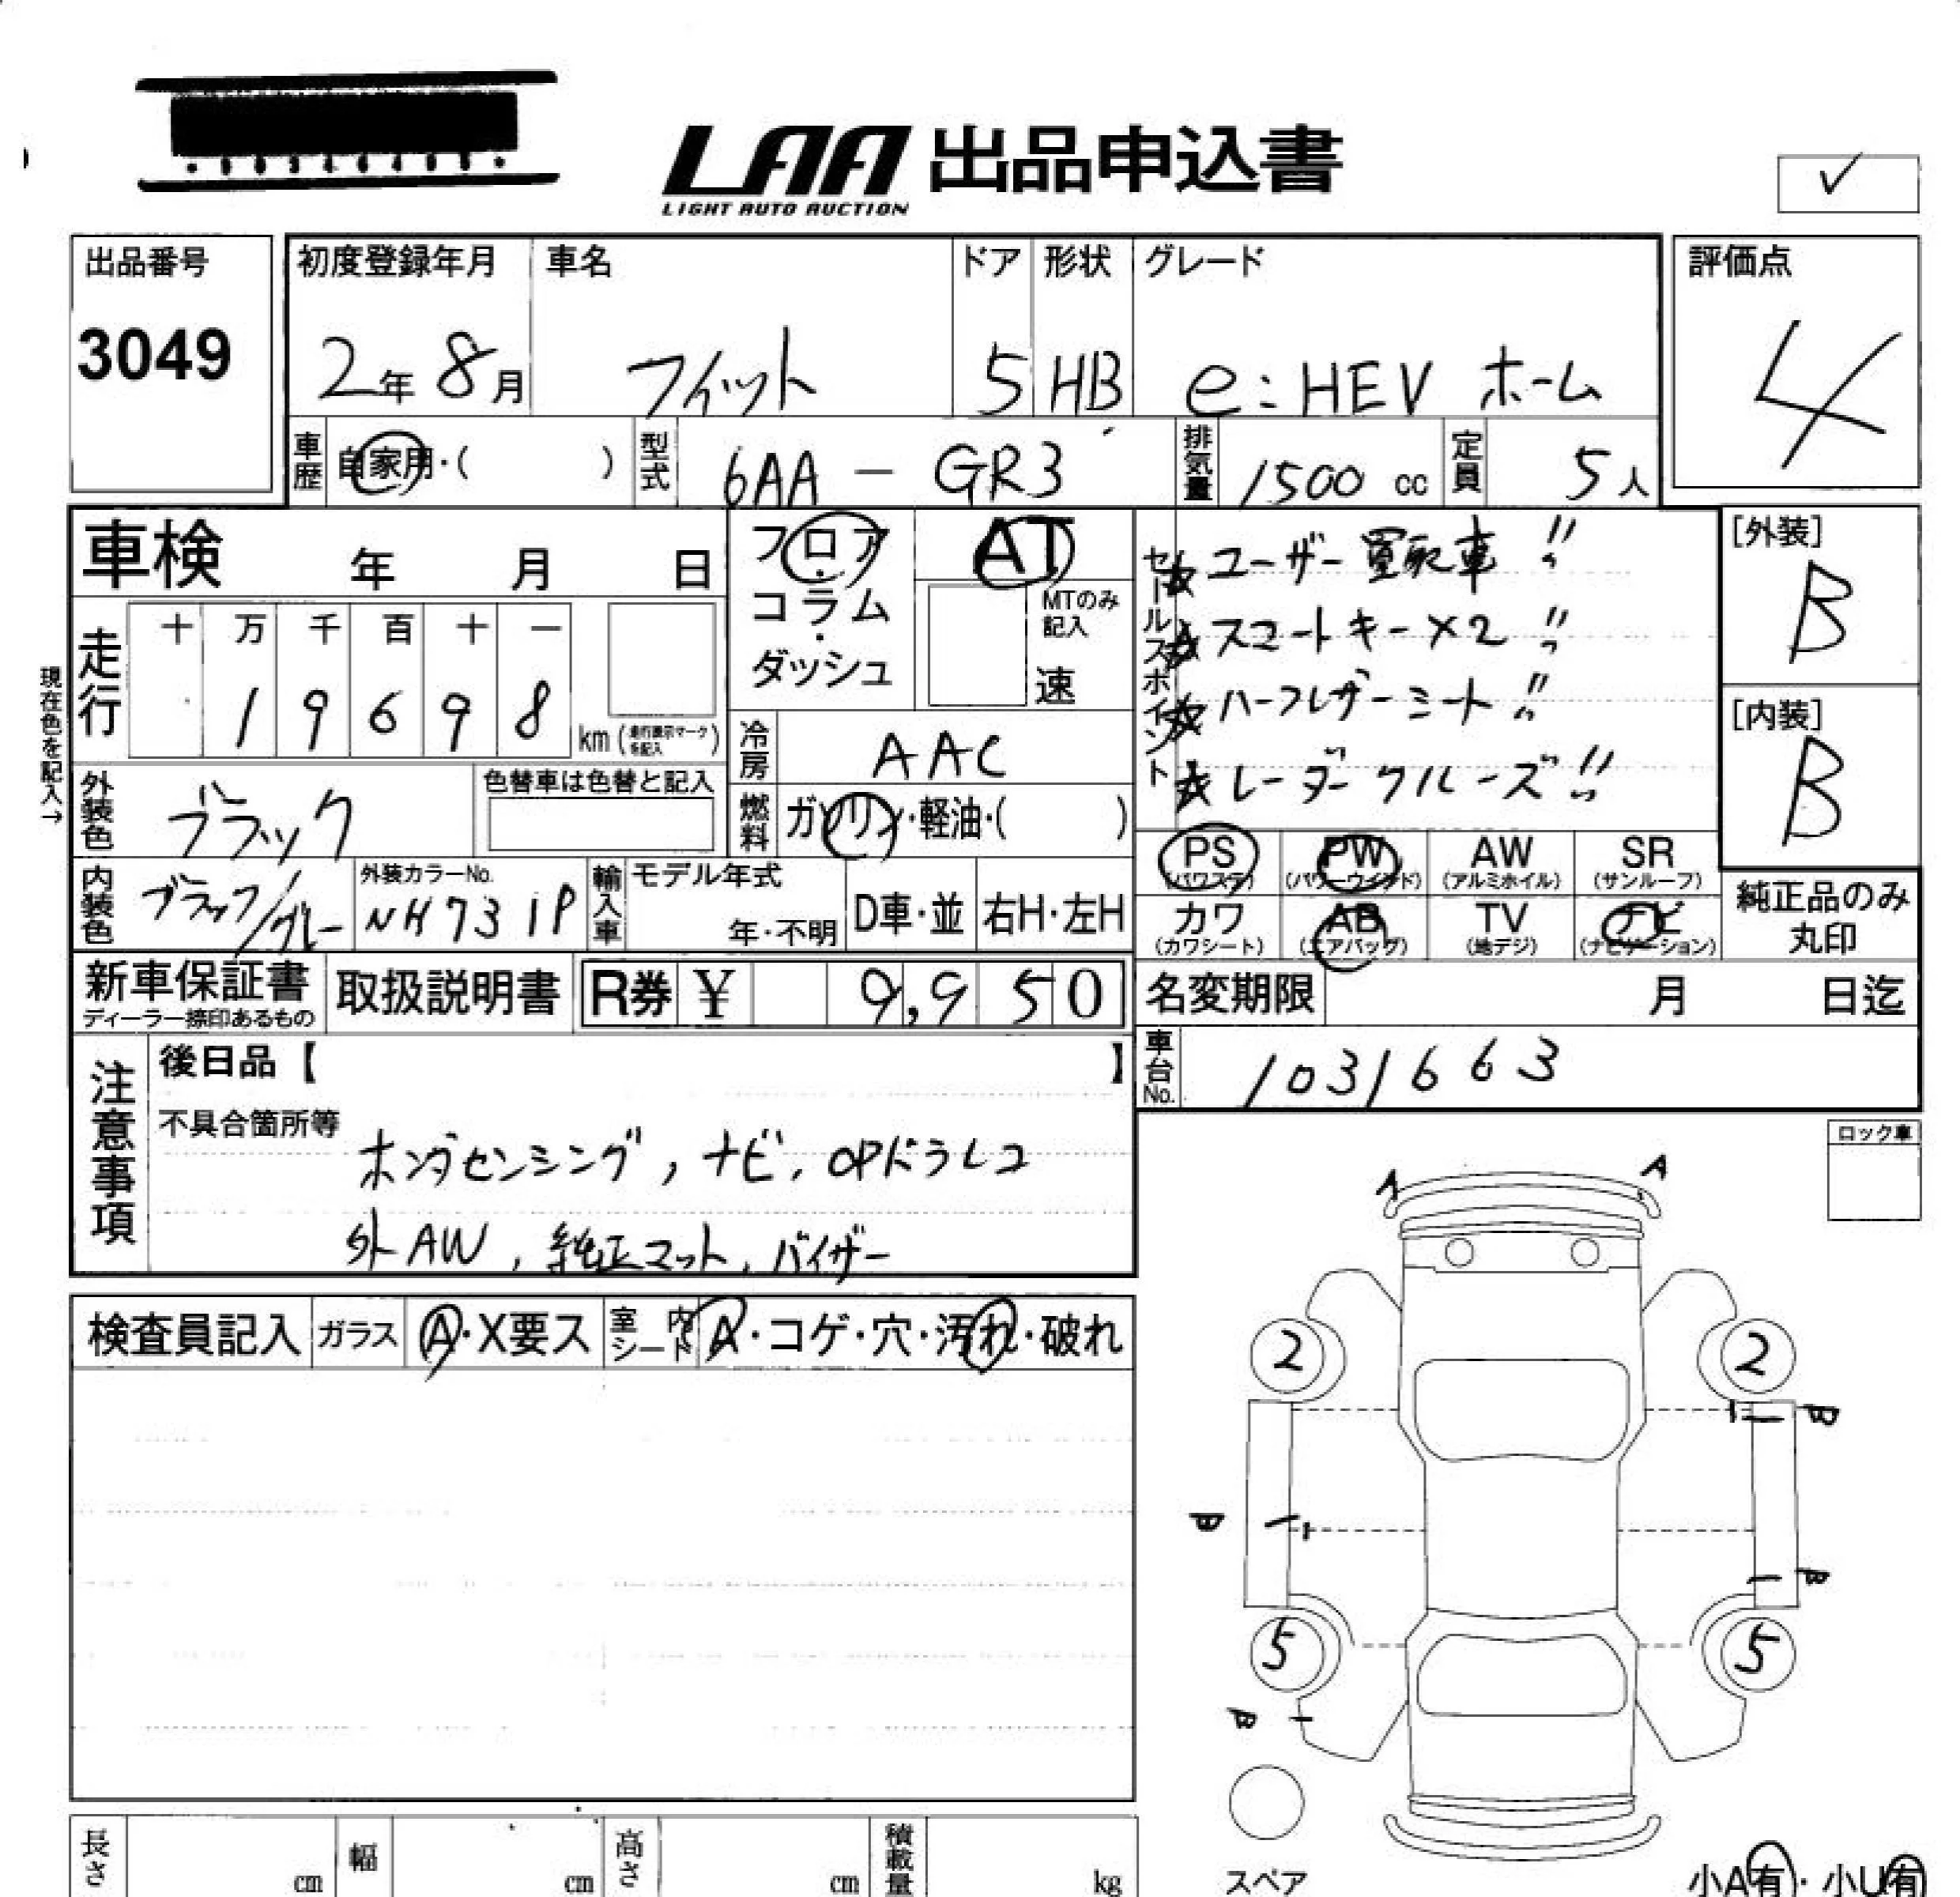 LAA 出品申込書
LIGHT AUTO AUCTION
✓
出品番号
3049
初度登録年月
2年 8月
車名
フィット
ドア
5
形状
HB
グレード
e:HEV ホーム
評価点
4
車歴 自家用・( )
型式 6AA - GR3
排気量 1500 cc
定員 5人
車検 年 月 日
フロア・コラム・ダッシュ
AT
MTのみ記入
速
セールスポイント
☆ユーザー買取車!!
☆スマートキー×2!!
☆ハーフレザーシート!!
☆レーダークルーズ!!
[外装]
B
[内装]
B
現在色を記入→
走行
十 万 千 百 十 一
1 9 6 9 8 km (走行表示マークを記入)
冷房 AAC
燃料 ガソリン・軽油・( )
外装色 ブラック
色替車は色替と記入
内装色 ブラック/グレー
外装カラーNo.
NH731P
輸入車
モデル年式
年・不明
D車・並
右H・左H
PS (パワステ)
PW (パワーウインド)
AW (アルミホイル)
SR (サンルーフ)
カワ (カワシート)
AB (エアバッグ)
TV (地デジ)
ナビ (ナビゲーション)
純正品のみ丸印
新車保証書
ディーラー捺印あるもの
取扱説明書
R券 ¥ 9,950
名変期限 月 日迄
車台No. 1031663
注意事項
後日品【 】
不具合箇所等
ホンダセンシング, ナビ, OPドラレコ
外AW, 純正マット, バイザー
ロック車
検査員記入
ガラス A・X要ス
室内シート A・コゲ・穴・汚れ・破れ
A A
2 2
B
B
B
5 5
B
スペア
小A有・小U有
長さ cm
幅 cm
高さ cm
積載量 kg